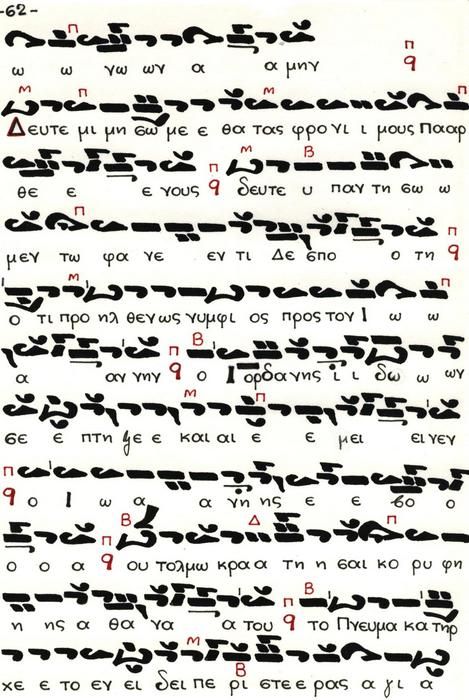 -62-
ω ω γω ων α α μην
Δευτε μι μη σω με ε θα τας φρο νι ι μους Πααρ
θε ε ε νους δευτε υ παν τη σω ω
μεν τω φα νε εν τι Δε σπο ο τη
ο τι προ ηλ θεν ως νυμφι ος προς τον Ι ω ω
α αν νην ο Ι ορδανης ι ι δω ω ων
σε ε πτη ξε ε και αι ε ε μει ει νεν
ο Ι ω α α νη ης ε ε βο ο
ο ο α ου τολμω κρα α τη η σαι κο ρυ φη
η ης α θα να α του το Πνευμα κα τηρ
χε ε το εν ει δει πε ρι στε ε ρας α γι α